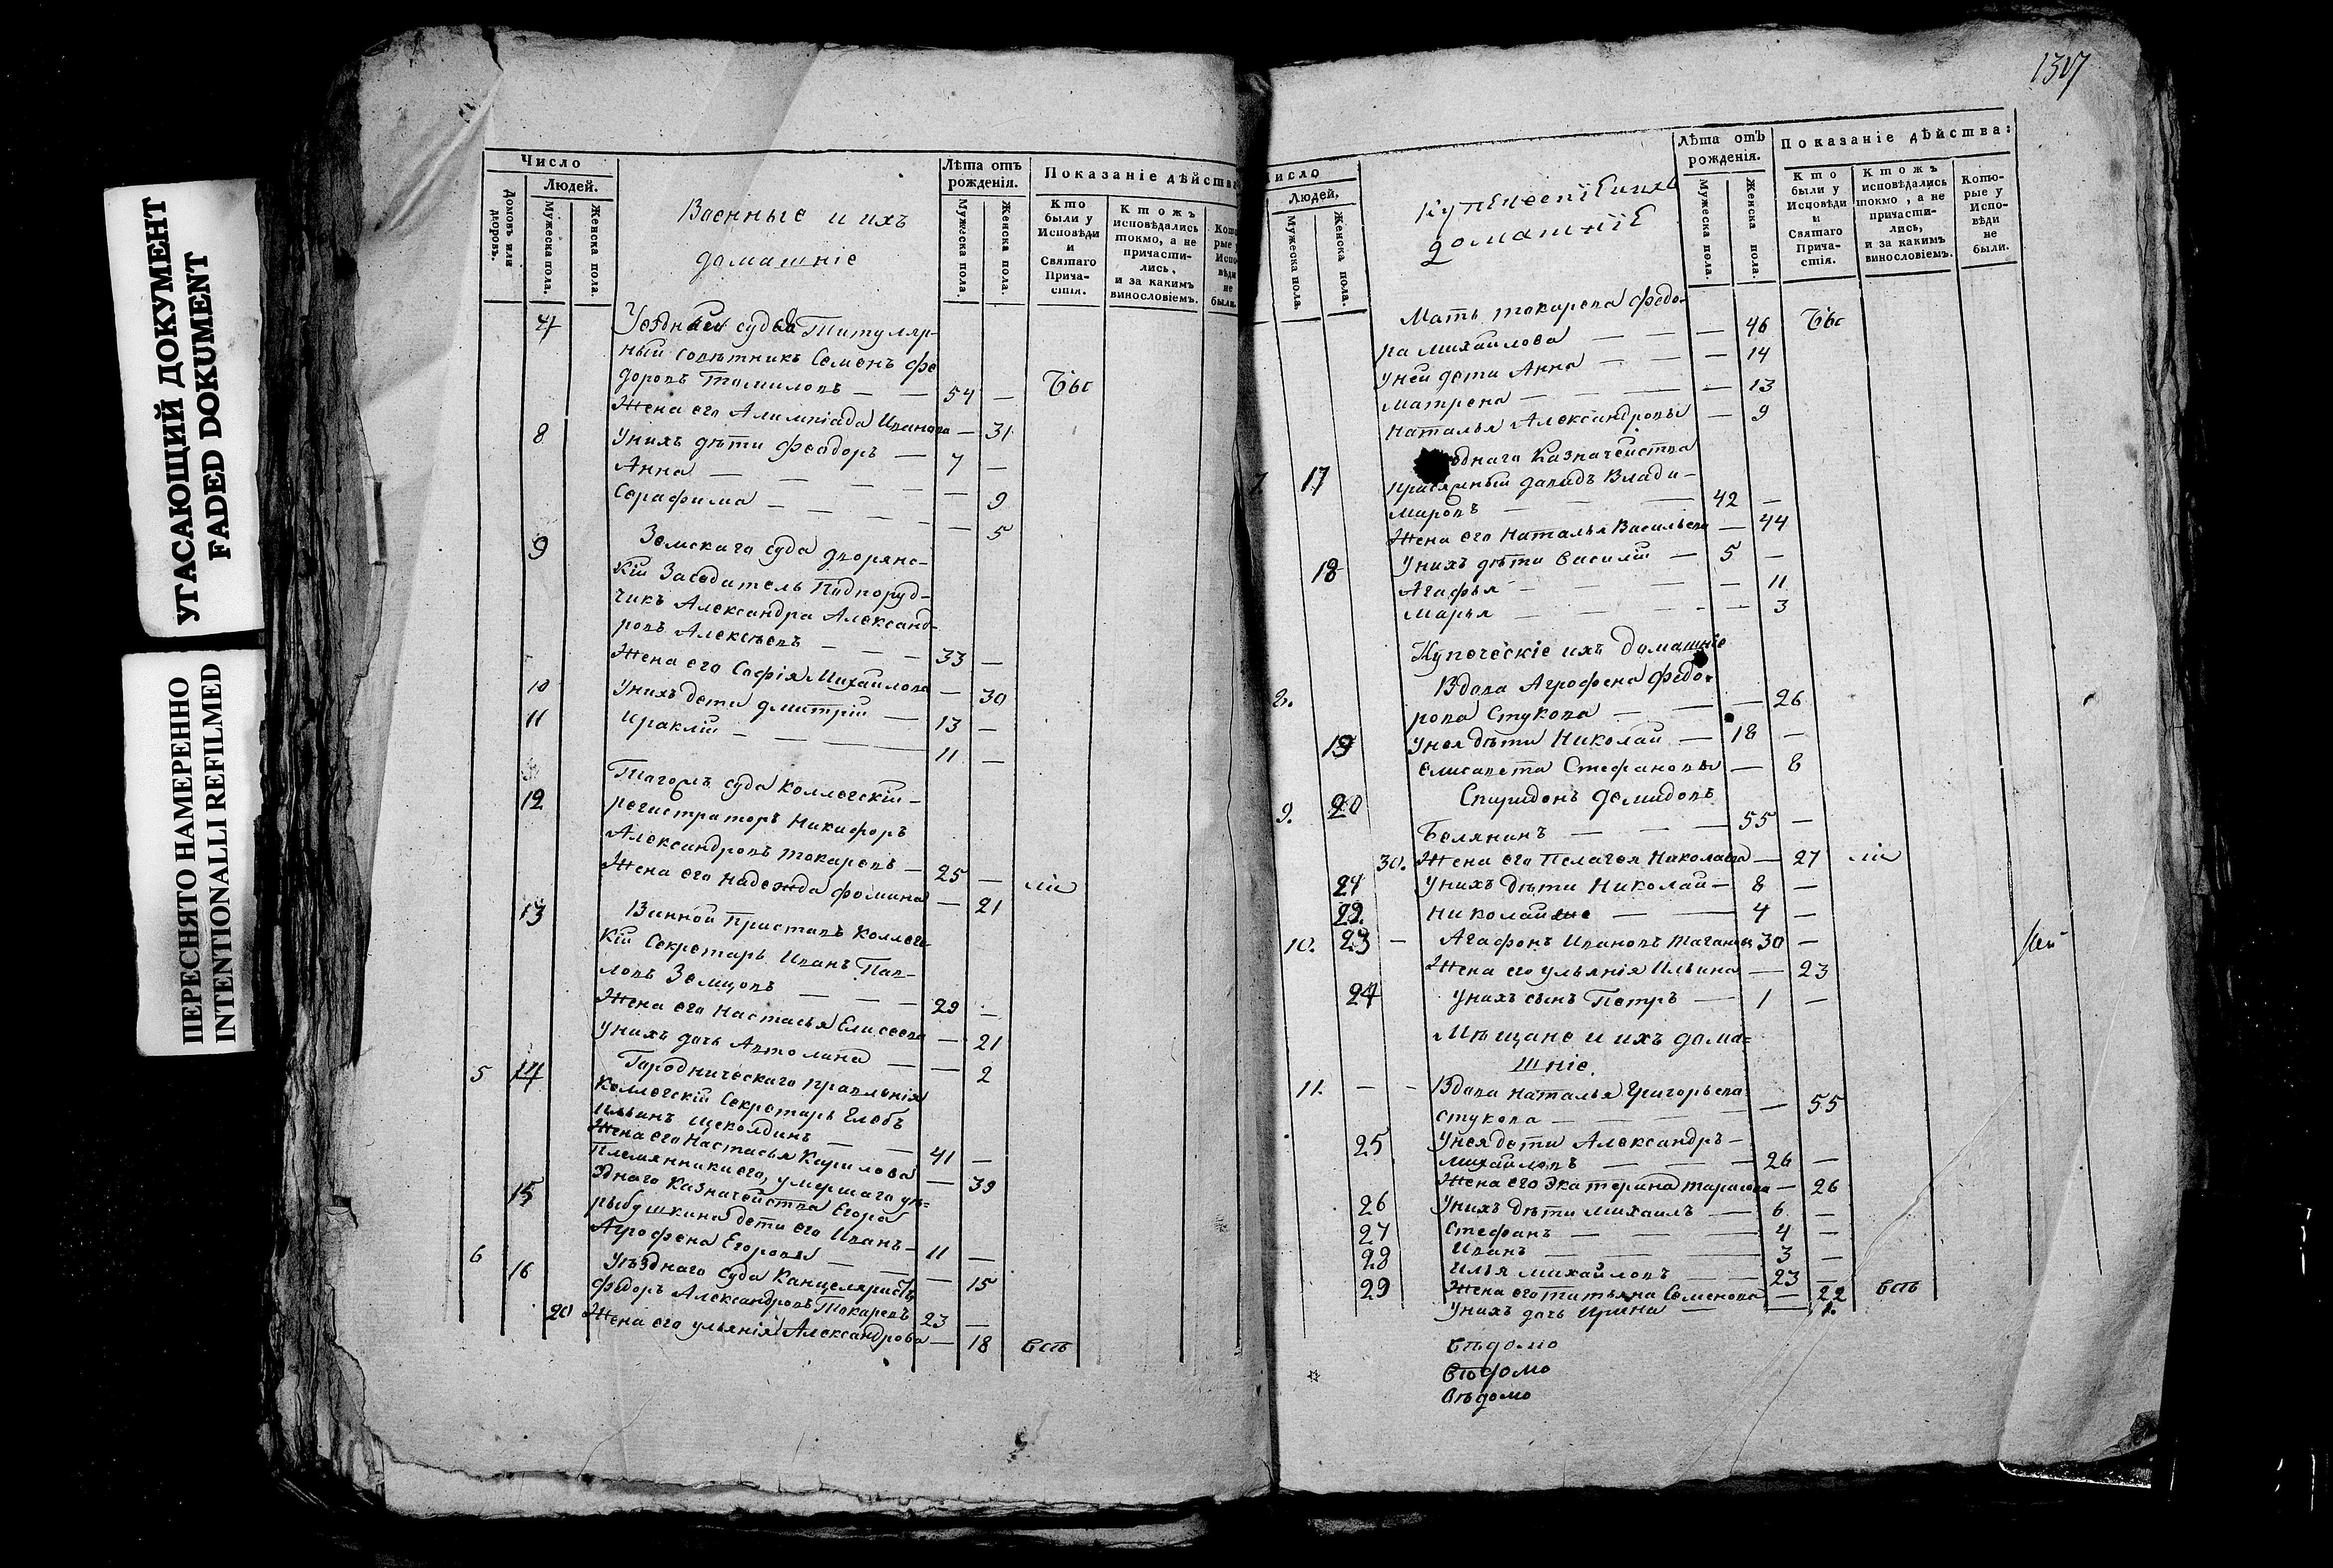 УГАСАЮЩИЙ ДОКУМЕНТ
FADED DOKUMENT
ПЕРЕСНЯТО НАМЕРЕННО
INTENTIONALLI REFILMED
Число
Людей.
Домовъ или дворовъ.
Мужеска пола.
Женска пола.
Военные и ихъ
домашніе
Лѣта отъ рожденія.
Мужеска пола.
Женска пола.
Показаніе дѣйства
Кто были у Исповѣди и Святаго Прича- стія.
Ктожъ исповѣдались токмо, а не причасти- лись, и за какимъ винословіемъ.
Кото рые у Испо вѣди не были.
Уездный судья Титуляр-
ный советникъ Семенъ Фе
доровъ Томиловъ — — 54 —
Жена его Алимпіада Иванова — 31
8 Унихъ дѣти Феодоръ — 7 —
Анна — — — — 9
Серафима — — — — 5
9 Земскаго суда дворянс-
кій Заседатель Подпоруд-
чикъ Александра Александ-
ровъ Алексѣевъ — — — 33 —
Жена его Софія Михайлова — 30
10 Унихъ дети Дмитрій — 13 —
11 Ираклій — — — — 11 —
Тагожъ суда Коллегскій —
12 регистраторъ Никифоръ
Александровъ Токаревъ — 25 —
Жена его Надежда Фомина — 21
13 Винной Приставъ Коллеге
кій Секретарь Иванъ Пав-
ловъ Земцовъ — — — 29 —
Жена его Настасья Елисеева — 21
Унихъ дочь Антолина — — 2
5 14 Городническаго правленія
Коллегскій Секретарь Глебъ
Ильинъ Щеколдинъ — — 41 —
Жена его Настасья Кирилова — 39
Племянники его, умершаго уѣ=
15 зднаго Казначейства Егора
рыбушкина дети его Иванъ — 11 —
Агрофена Егоровы — — — 15
6 16 Уѣзднаго суда Канцеляристъ
Федоръ Александровъ Токаревъ 23 —
20 Жена его ульянія Александрова — 18 Всѣ
1307
Число
Людей.
Мужеска пола.
Женска пола.
домашніе
Лѣта отъ рожденія.
Мужеска пола.
Женска пола.
Показаніе дѣйства:
Кто были у Исповѣди и Святаго Прича- стія.
Ктожъ исповѣдались токмо, а не причасти- лись, и за какимъ винословіемъ.
Кото- рые у Испо- вѣди не были.
Мать токарева Федо-
ра Михайлова — — — 46
Уней дети Анна — — — 14
Матрена — — — — 13
Наталья Александровы — 9
еднаго Казначейства
17 присяжный давидъ Влади-
мировъ — — — 42 —
Жена его Наталья Васильева — 44
18 Унихъ дѣти Василій — 5 —
Агафья — — — 11
Марья — — — 3
Купеческіе ихъ Домашніе
8. Вдова Агрофена Федо-
рова Стукова — — — 26
19 Унея дѣти Николай — 18 —
Елисавета Стефановы — 8
9. 20 Спиридонъ Демидовъ
Белянинъ — — — 55 —
30. Жена его Пелагея Николаева — 27
21 Унихъ дѣти Николай — 8 —
22. Николай же — — 4 —
10. 23 — Агафонъ Ивановъ 30 —
Жена его ульянія Ильина — 23
24 Унихъ сынъ Петръ — 1 —
Мѣщане и ихъ дома=
шніе.
11. — — Вдова Наталья Григорьева
стукова — — — 55
25 Унея дети Александръ —
Михайловъ — — — 26 —
Жена его Екатерина Тарасова — 26
26 Унихъ дѣти Михаилъ — 6 —
27 Стефанъ — — 4 —
28 Иванъ — — 3 —
Илья Михайловъ — — 23 —
29 Жена его татьяна Семенова — 22 Всѣ
Унихъ дочь Ирина — — 1.
вѣдомо
вѣдомо
вѣдомо